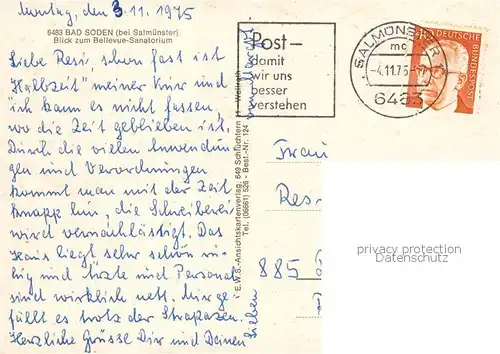 Montag, den 3.11.1975
6483 BAD SODEN (bei Salmünster)
Blick zum Bellevue-Sanatorium
Liebe Resi, heute fast ist
"Halbzeit" meiner Kur und
ich kann es nicht fassen,
wo die Zeit geblieben ist.
Durch die vielen Anwendun-
gen und Verordnungen
kommt man mit der Zeit
knapp hin, die Schreiberei
wird vernachlässigt. Das
Haus liegt sehr schön ru-
hig und Ärzte und Personal
sind wirklich nett. Mir ge-
fällt es trotz der Strapazen.
Herzliche Grüsse Dir und Deinen
Lieben
E.W.S.-Ansichtskartenverlag, 649 Schlüchtern
Tel. (06661) 526 - Best.-Nr. 124
Post-
damit
wir uns
besser
verstehen
SALMÜNSTER 1
mc
-4.11.75-
6483
DEUTSCHE
BUNDESPOST
Frau
Res
885
privacy protection
Datenschutz